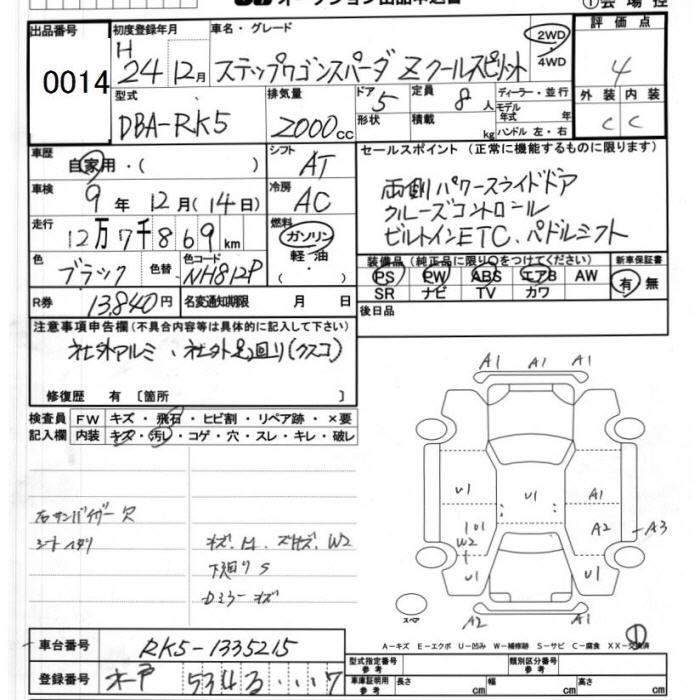 オークション出品申込書
①会場控
出品番号
0014
初度登録年月
H
24 12月
車名・グレード
ステップワゴンスパーダ Zクールスピリット
2WD
・
4WD
評価点
4
型式
DBA-RK5
排気量
2000cc
ドア 5
形状
定員 8人
積載 kg
ディーラー・並行
モデル年式 年
ハンドル 左・右
外装 内装
C C
車歴 自家用・( )
シフト AT
車検 9年 12月(14日)
冷房 AC
走行 12万7千869km
燃料 ガソリン
・
軽油
・
( )
色 ブラック 色替 色コード NH812P
R券 13,840円 名変通知期限 月 日
セールスポイント(正常に機能するものに限ります)
両側パワースライドドア
クルーズコントロール
ビルトインETC、パドルシフト
装備品(純正品に限り○をつけてください)
PS PW ABS エアB AW
SR ナビ TV カワ
新車保証書
有・無
後日品
注意事項申告欄(不具合内容等は具体的に記入して下さい)
社外アルミ、社外足回り(クスコ)
修復歴 有 [箇所 ]
検査員記入欄
FW キズ・飛石・ヒビ割・リペア跡・×要
内装 キズ・汚レ・コゲ・穴・スレ・キレ・破レ
右サンバイザー穴
シートヘタリ
キズ.H.ズサズ.W2
下廻りS
Dミラーキズ
A1 A1 A1
U1 U1 A1
101 A2 A3
W2
U1 U1
A2 A1
スペア
①
A-キズ E-エクボ U-凹み W-補修跡 S-サビ C-腐食 XX-交換済
車台番号 RK5-1335215
登録番号 534 ... 7
型式指定番号
参考
類別区分番号
参考
車庫証明用
参考
長さ cm 幅 cm 高さ cm